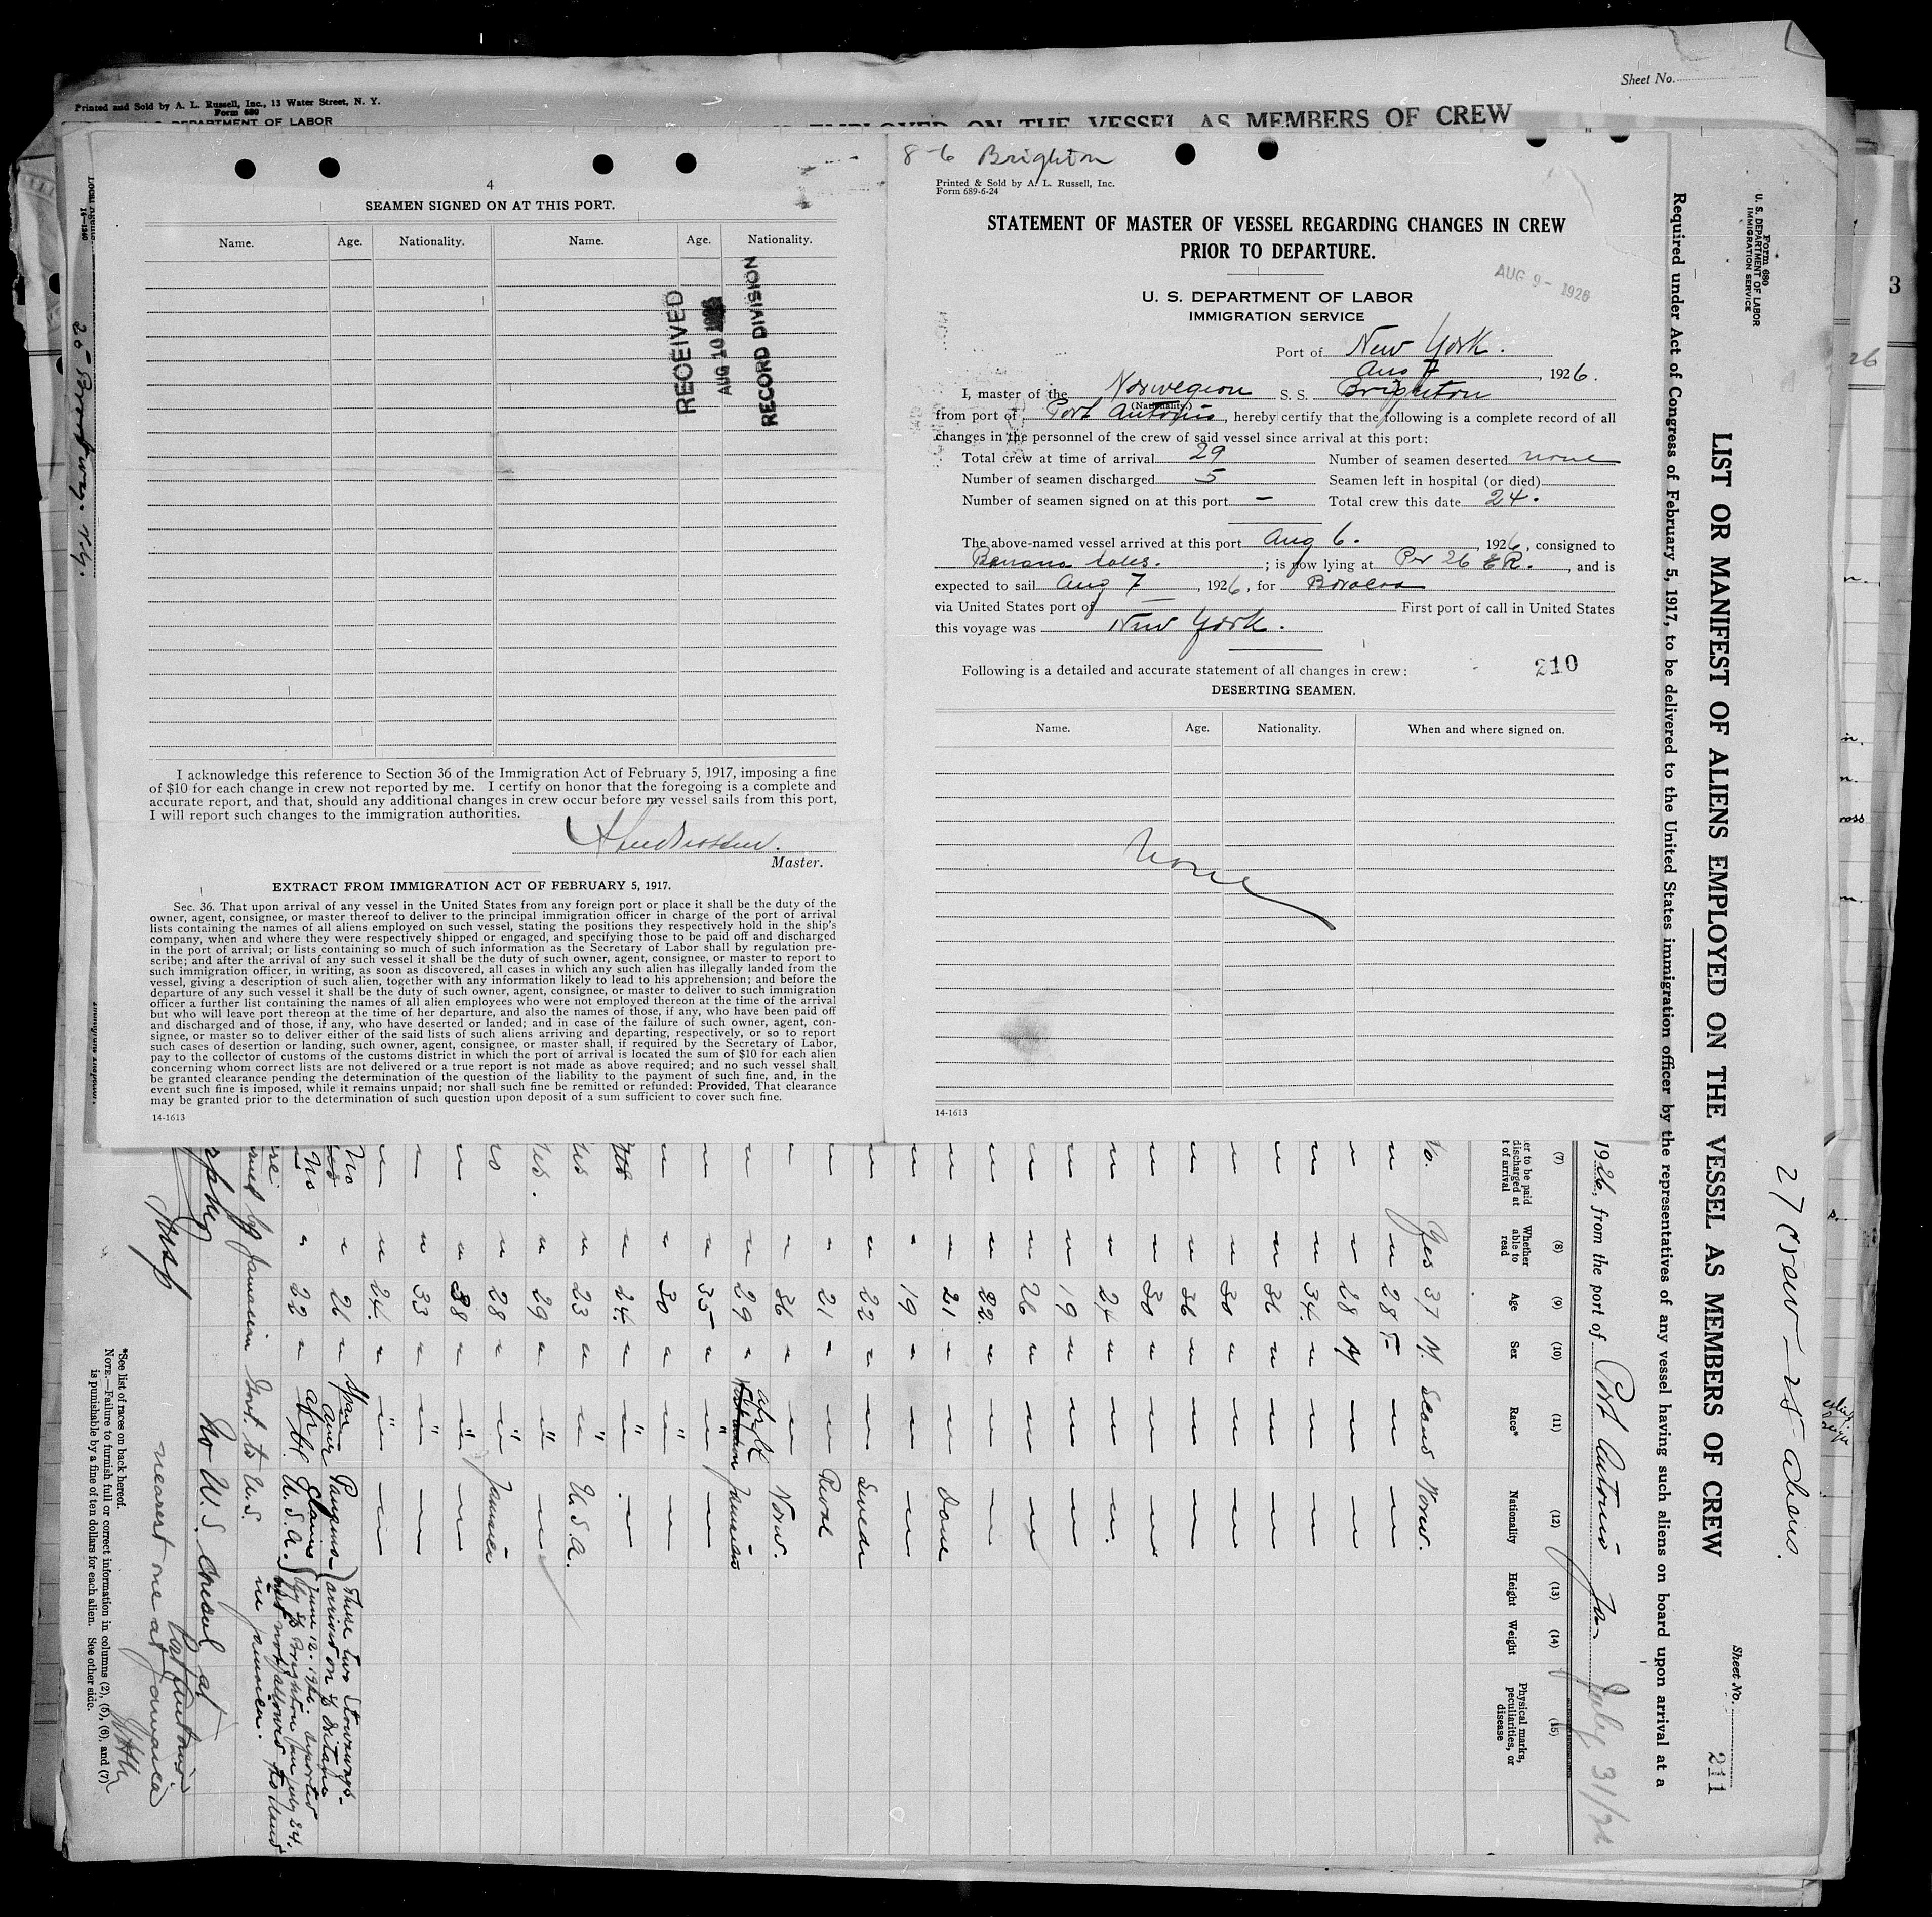 Sheet No.
Printed and Sold by A. L. Russell, Inc., 13 Water Street, N. Y.
Form 680
DEPARTMENT OF LABOR
EMPLOYED ON THE VESSEL AS MEMBERS OF CREW
4
SEAMEN SIGNED ON AT THIS PORT.
Name. Age. Nationality. Name. Age. Nationality.
RECEIVED
AUG 10
RECORD DIVISION
I acknowledge this reference to Section 36 of the Immigration Act of February 5, 1917, imposing a fine
of $10 for each change in crew not reported by me. I certify on honor that the foregoing is a complete and
accurate report, and that, should any additional changes in crew occur before my vessel sails from this port,
I will report such changes to the immigration authorities.
Master.
EXTRACT FROM IMMIGRATION ACT OF FEBRUARY 5, 1917.
Sec. 36. That upon arrival of any vessel in the United States from any foreign port or place it shall be the duty of the
owner, agent, consignee, or master thereof to deliver to the principal immigration officer in charge of the port of arrival
lists containing the names of all aliens employed on such vessel, stating the positions they respectively hold in the ship's
company, when and where they were respectively shipped or engaged, and specifying those to be paid off and discharged
in the port of arrival; or lists containing so much of such information as the Secretary of Labor shall by regulation pre-
scribe; and after the arrival of any such vessel it shall be the duty of such owner, agent, consignee, or master to report to
such immigration officer, in writing, as soon as discovered, all cases in which any such alien has illegally landed from the
vessel, giving a description of such alien, together with any information likely to lead to his apprehension; and before the
departure of any such vessel it shall be the duty of such owner, agent, consignee, or master to deliver to such immigration
officer a further list containing the names of all alien employees who were not employed thereon at the time of the arrival
but who will leave port thereon at the time of her departure, and also the names of those, if any, who have been paid off
and discharged and of those, if any, who have deserted or landed; and in case of the failure of such owner, agent, con-
signee, or master so to deliver either of the said lists of such aliens arriving and departing, respectively, or so to report
such cases of desertion or landing, such owner, agent, consignee, or master shall, if required by the Secretary of Labor,
pay to the collector of customs of the customs district in which the port of arrival is located the sum of $10 for each alien
concerning whom correct lists are not delivered or a true report is not made as above required; and no such vessel shall
be granted clearance pending the determination of the question of the liability to the payment of such fine, and, in the
event such fine is imposed, while it remains unpaid; nor shall such fine be remitted or refunded: Provided, That clearance
may be granted prior to the determination of such question upon deposit of a sum sufficient to cover such fine.
14-1613
8-6 Brighton
Printed & Sold by A. L. Russell, Inc.
Form 689-6-24
STATEMENT OF MASTER OF VESSEL REGARDING CHANGES IN CREW
PRIOR TO DEPARTURE.
AUG 9 - 1926
U. S. DEPARTMENT OF LABOR
IMMIGRATION SERVICE
Port of New York.
Aug 7, 1926.
I, master of the Norwegian S. S. Brighton
(Nationality)
from port of Port Antonio, hereby certify that the following is a complete record of all
changes in the personnel of the crew of said vessel since arrival at this port:
Total crew at time of arrival 29 Number of seamen deserted none
Number of seamen discharged 5 Seamen left in hospital (or died)
Number of seamen signed on at this port - Total crew this date 24.
The above-named vessel arrived at this port Aug 6. , 1926, consigned to
Banana Sales. ; is now lying at Pier 26 E R. , and is
expected to sail Aug 7, 1926, for Baracoa
via United States port of — First port of call in United States
this voyage was New York.
Following is a detailed and accurate statement of all changes in crew: 210
DESERTING SEAMEN.
Name. Age. Nationality. When and where signed on.
None
14-1613
27 Crew - 25 aliens.
Form 680
U. S. DEPARTMENT OF LABOR
IMMIGRATION SERVICE
Sheet No. 211
LIST OR MANIFEST OF ALIENS EMPLOYED ON THE VESSEL AS MEMBERS OF CREW
Required under Act of Congress of February 5, 1917, to be delivered to the United States immigration officer by the representatives of any vessel having such aliens on board upon arrival at a
1926, from the port of Port Antonio Ja July 31/26
(7) (8) (9) (10) (11) (12) (13) (14) (15)
Whether able to read Age Sex Race* Nationality Height Weight Physical marks, peculiarities, or disease
No. Yes 37 M. Scand Norw.
" " 28 F " "
" " 28 M " "
" " 34 " " "
" " 36 " " "
" " 30 " " "
" " 36 " " "
" " 30 " " "
" " 24 " " "
" " 19 " " "
" " 26 " " "
" " 22 " " "
" " 21 " " Dane
" " 19 " " "
" " 22 " " Swede
" " 21 " "
" " 36 " " Norw.
" " 29 " Afr blk Jamaican
" " 35 " " "
" " 30 " " "
Yes " 24 " " "
Yes " 23 " " U.S.A.
Yes. " 29 " " "
No " 28 " " Jamaica
" " 38 " " "
" " 33 " " "
" " 24 " " "
No " 26 " Span Amer
No " 22 " Afr bl. U.S.A.
These two Stowaways
arrived on
June 12- 1926 deported
by SS Brighton from July 24.
but not allowed to land
in Jamaica.
by Jamaican Govt. to U.S.
No U.S. Consul at
Port Antonio
nearest one at Jamaica
*See list of races on back hereof.
NOTE.—Failure to furnish full or correct information in columns (2), (5), (6), and (7)
is punishable by a fine of ten dollars for each alien. See other side.